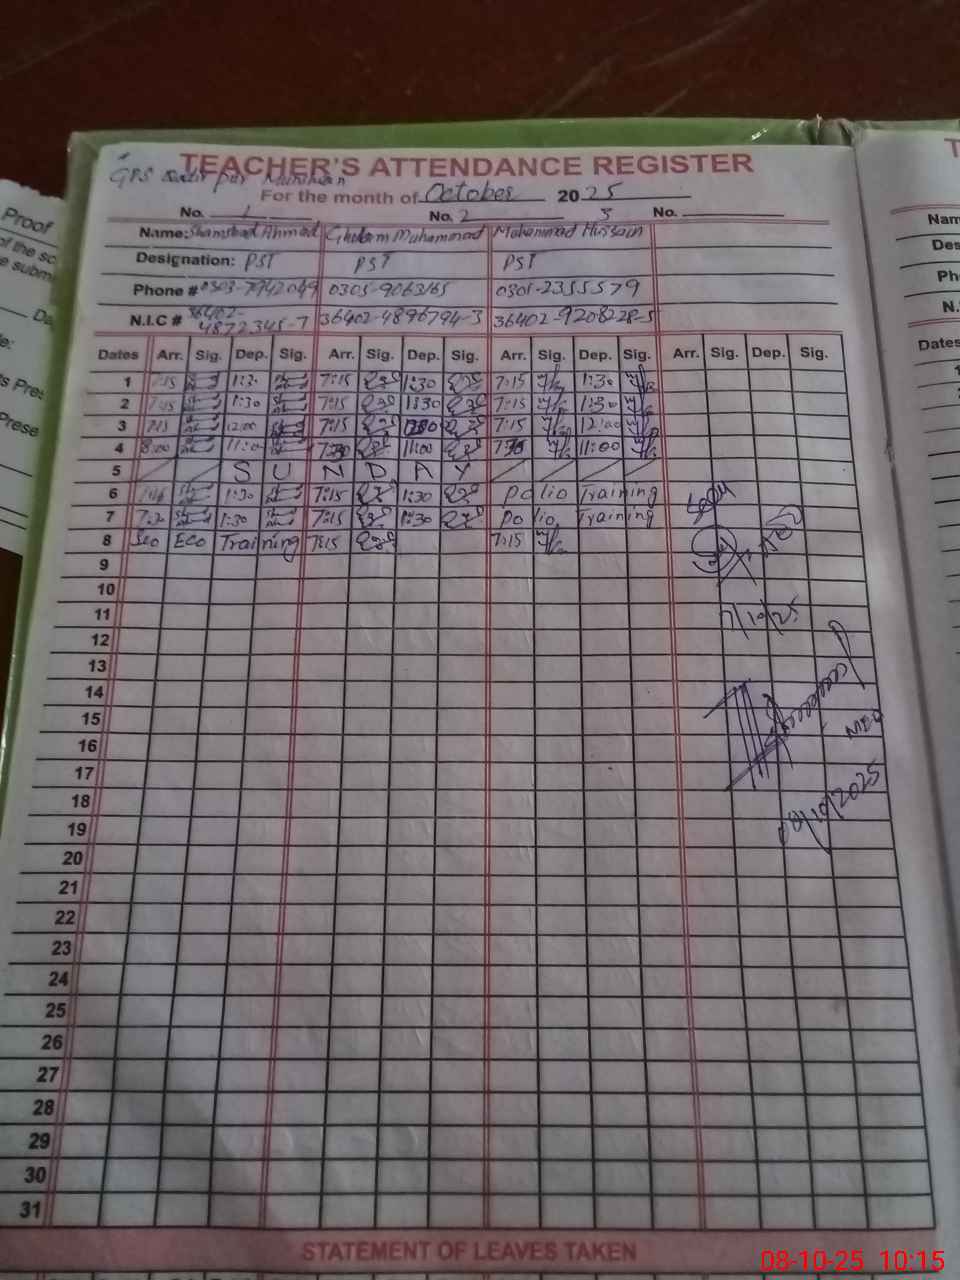 TEACHER'S ATTENDANCE REGISTER
GPS
For the month of October 2025
No. 1 No. 2 3 No.
Name: Shamshad Ahmad Ghulam Muhammad Muhammad Hussain
Designation: PST PST PST
Phone # 0303-7942049 0305-9063165 0301-2355579
N.I.C # 36402-4872345-7 36402-4896794-3 36402-9208228-5
Dates Arr. Sig. Dep. Sig. Arr. Sig. Dep. Sig. Arr. Sig. Dep. Sig. Arr. Sig. Dep. Sig.
1 7:15 1:30 7:15 1:30 7:15 1:30
2 7:15 1:30 7:15 1:30 7:15 1:30
3 7:15 12:00 7:15 7:15 12:00
4 8:00 11:00 11:00 11:00
5 S U N D A Y
6 1:30 7:15 1:30 Polio Training
7 7:30 1:30 7:15 1:30 Polio Training
8 Training 7:15 7:15
9
10
11 7/10/25
12
13
14
15
16
17
18 08/10/2025
19
20
21
22
23
24
25
26
27
28
29
30
31
STATEMENT OF LEAVES TAKEN
Proof
of the sc
e subm
Da
te:
ts Pres
Prese
T
Nam
Des
Ph
N.
Dates
08-10-25 10:15